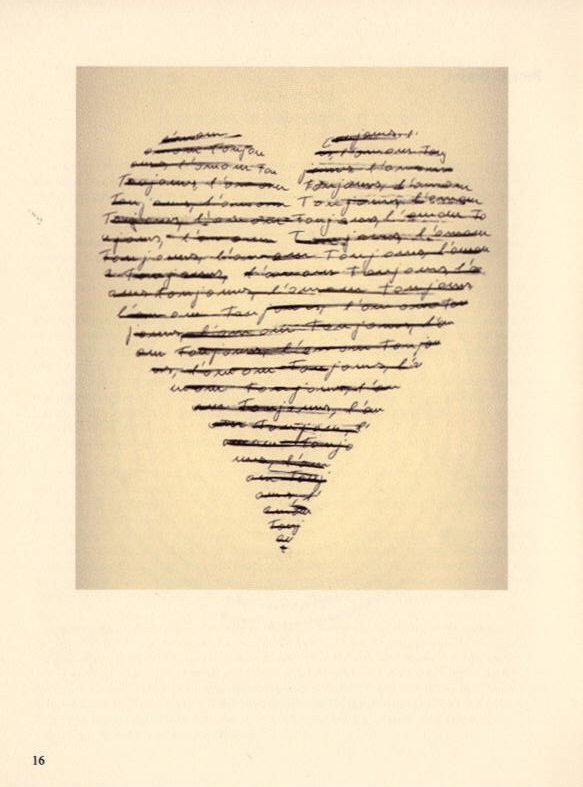 l'amour
amour Toujou
ours, l'amour Tou
jours, l'amour
Toujours, l'amour Toujours, l'amour
Toujours, l'amour Toujours, l'amour
Toujours, l'amour Toujours, l'amour To
ujours, l'amour Toujours, l'amour
Toujours, l'amour Toujours, l'amour
Toujours, l'amour Toujours, l'a
mour Toujours, l'amour Toujours
l'amour Toujours, l'amour Tou
jours, l'amour Toujours, l'am
our Toujours, l'amour Toujou
rs, l'amour Toujours, l'a
mour Toujours, l'am
our Toujours, l'am
our Toujours, l'
amour Toujo
urs, l'am
our Touj
ours, l'
amour
Touj
16